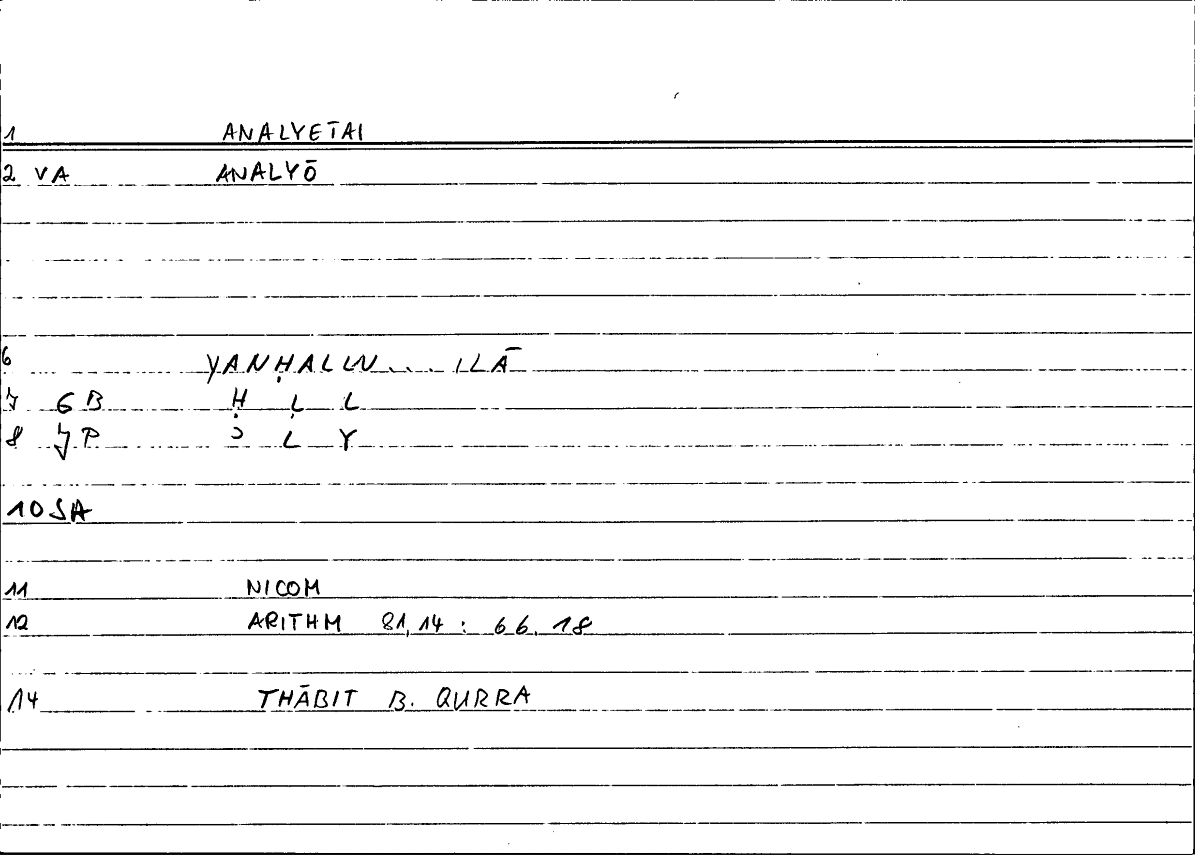 1 ANALYETAI
2 VA ANALYŌ
6 YANḤALLU... ILĀ
7 6B Ḥ L L
8 7P Ɔ L Y
10 SA
11 NICOM
12 ARITHM 81,14 : 66.18
14 THĀBIT B. QURRA